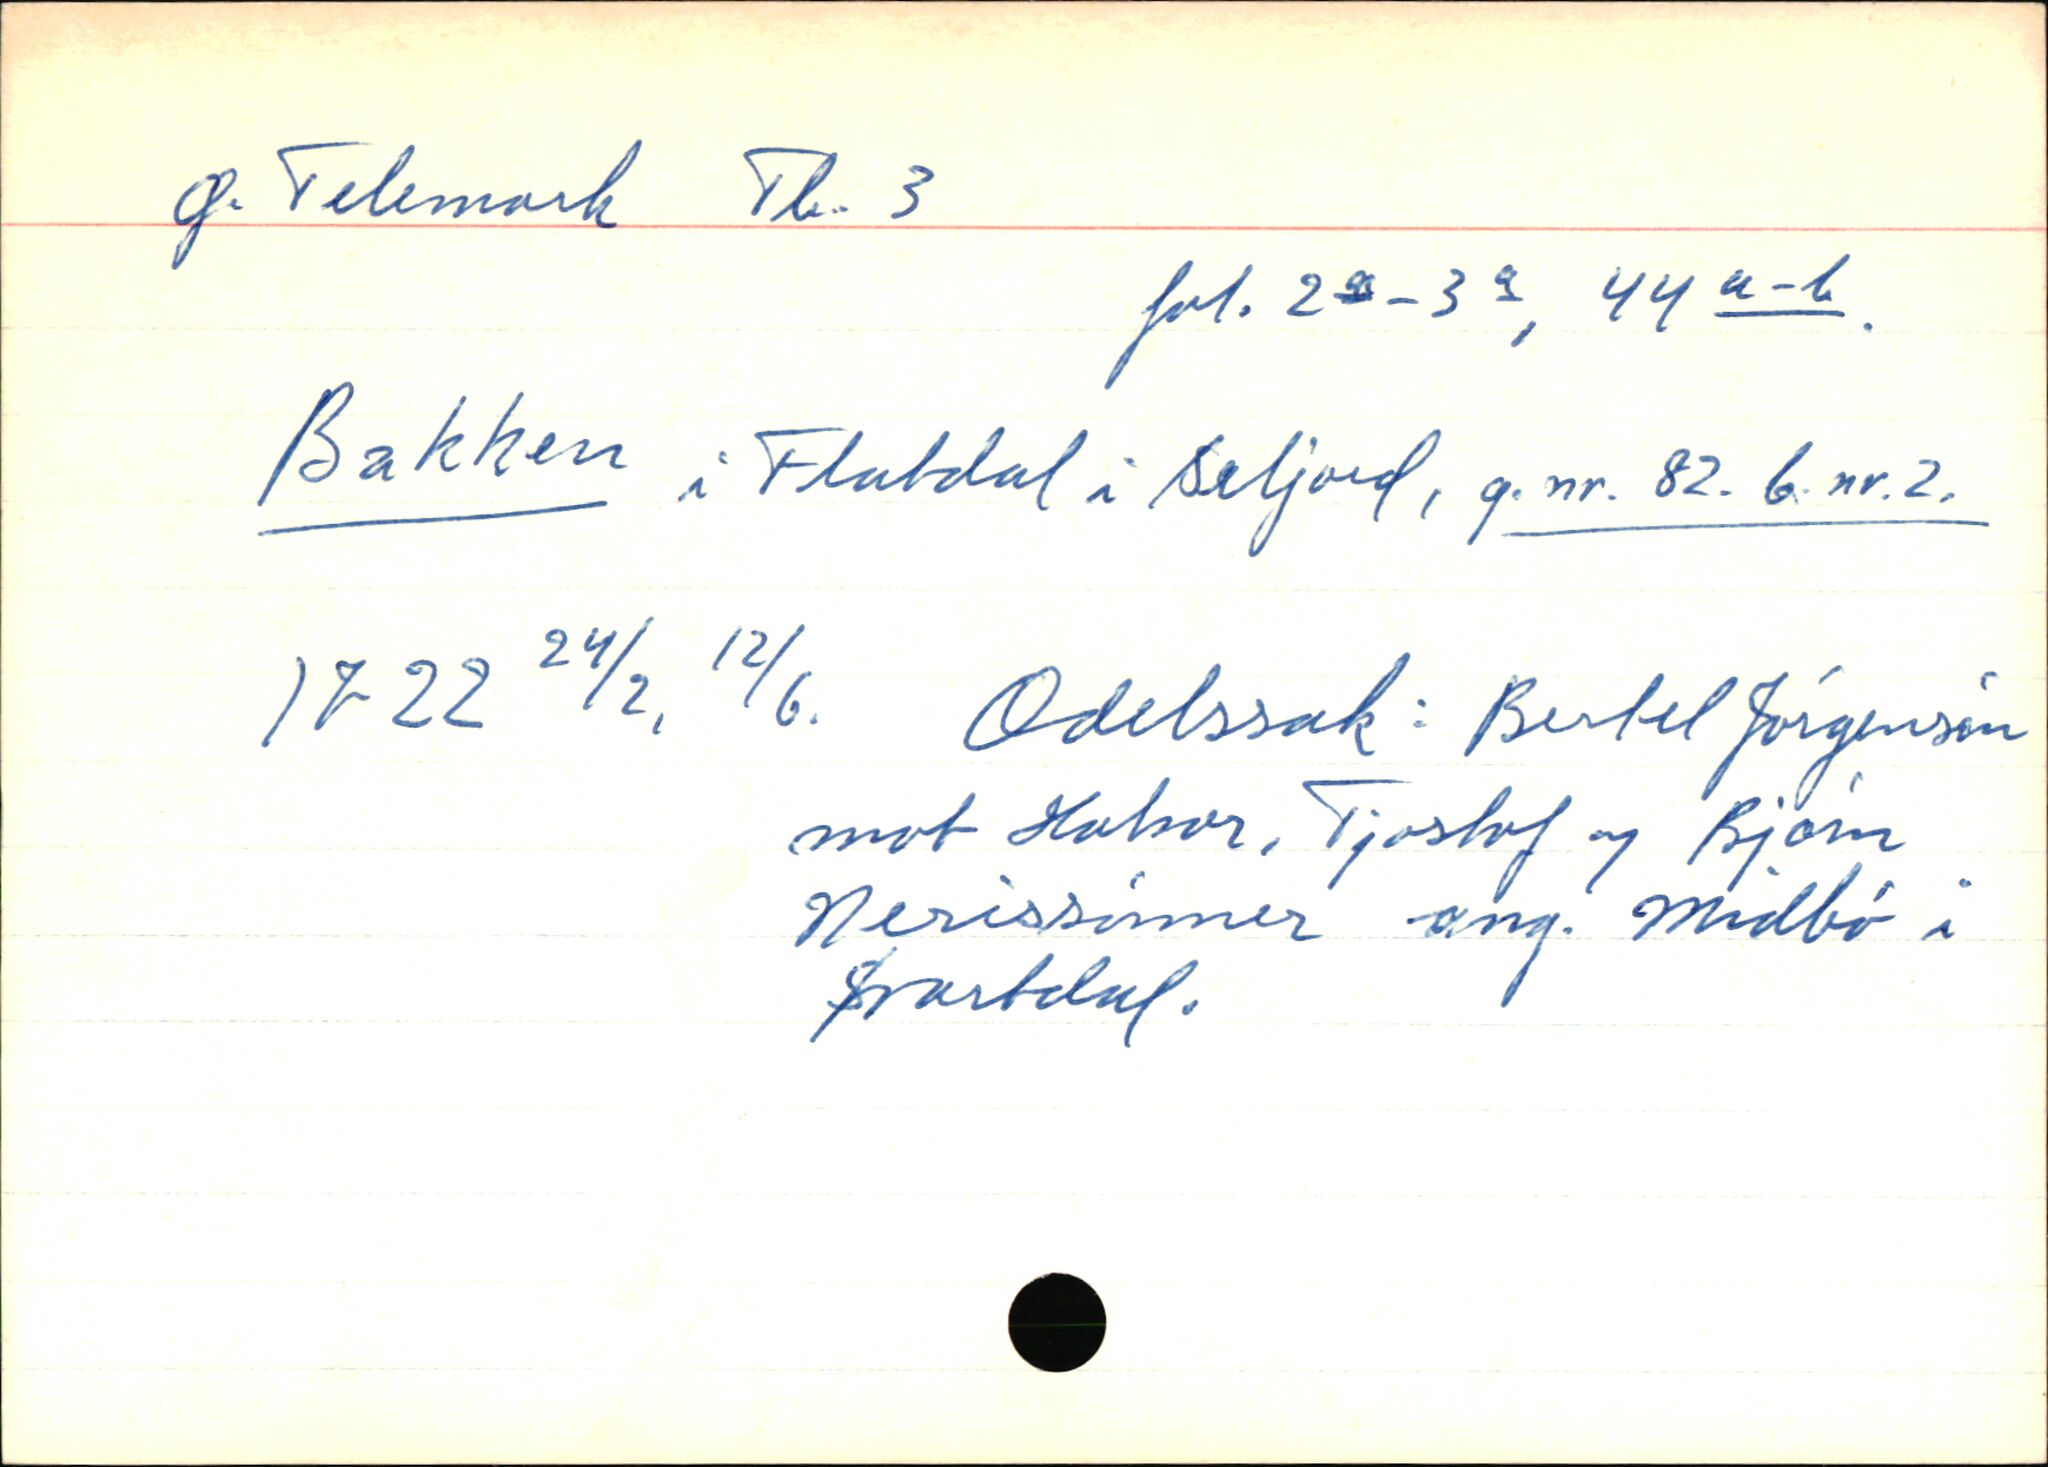 Ø. Telemark Tb. 3
fol. 2a-3a, 44 a-b.
Bakken i Flatdal i Seljord, g.nr. 82. b.nr.2.
1722 24/2, 12/6. Odelssak: Bertel Jörgensön
mot Halvor, Tjostof og Björn
Nerissönner ang. Midbö i
Svartdal.